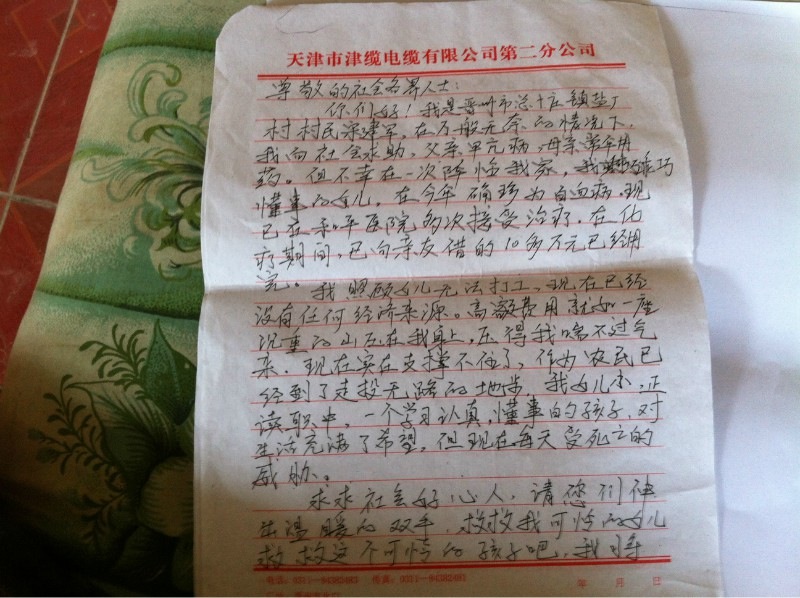 天津市津缆电缆有限公司第二分公司
尊敬的社会各界人士:
你们好!我是晋州市总十庄镇盐厂
村村民宗建军,在万般无奈的情况下
我向社会求助,父亲甲亢病,母亲常年用
药。但不幸在一次降临我家,我乖巧
懂事的女儿,在今年确珍为白血病,现
已在和平医院多次接受治疗,在佔
疗期间,已向亲友借的10多万元已经用
完。我照顾女儿无法打工,现在已经
没有任何经济来源。高额费用就如一座
沉重的山压在我身上,压得我喘不过气
来.现在实在支撑不住了,作为农民已
经到了走投无路的地步,我女儿小,正
读职中,一个学习认真,懂事的孩子,对
生活充满了希望,但现在每天受死亡的
威胁。
求求社会好心人,请您们伸
出温暖的双手,救救我可怜的女儿
救救这个可怜的孩子吧,我将
电话:0311-84382483 传真:0311-84382483
年 月 日